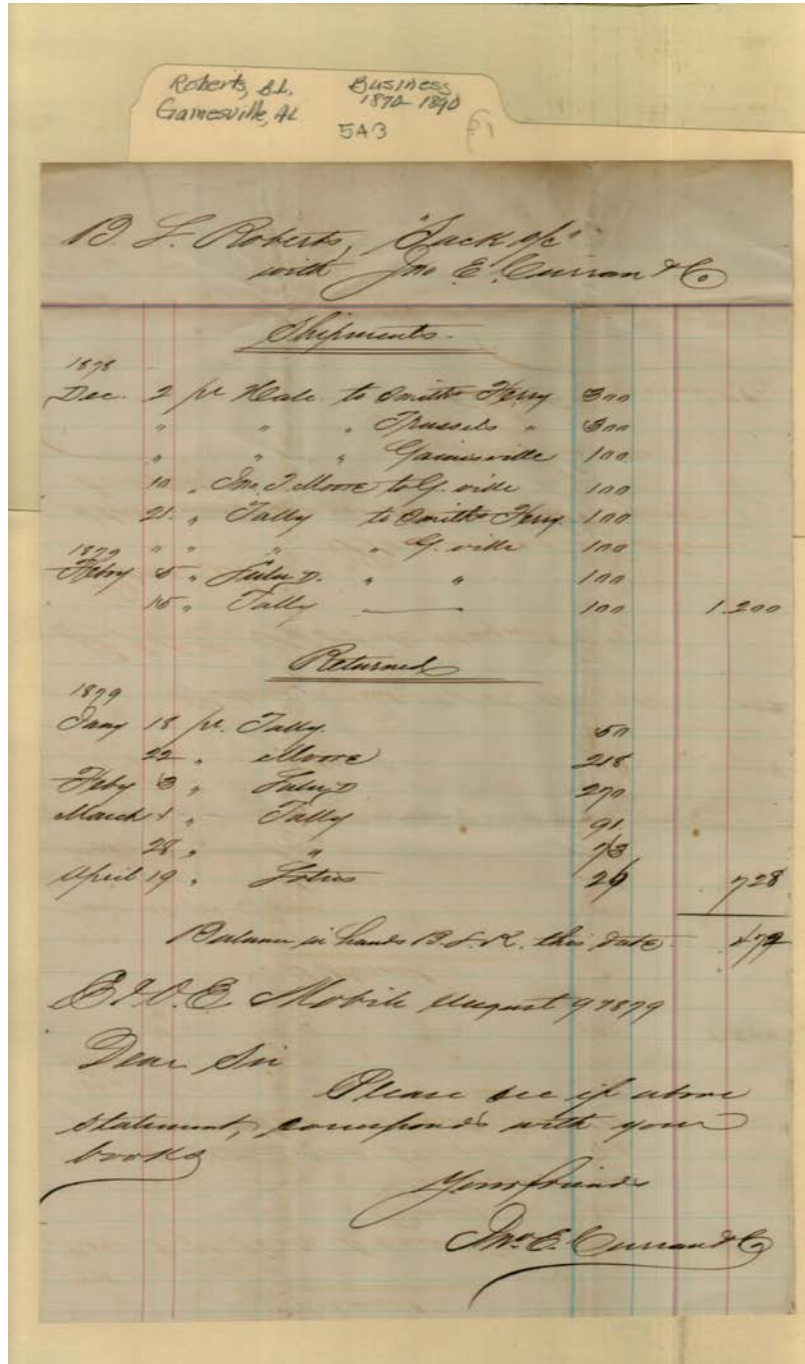 Roberts, B.L. Business
Gainesville, AL 1870-1890
5A3
B. L. Roberts, "Sack a/c"
with Jno E. Curran & Co
Shipments.
1878
Dec. 2 pr Hale to Smiths Ferry 300
" " " Trussels " 300
" " " Gainisville 100
10 " Jno. T. Moore to G. ville 100
21. " Tally to Smiths Ferry 100
" " " " G. ville 100
1879
Feby 5 " Lulu D. " " 100
15 " Tally 100 1.200
Returned
1879
Jany 18 pr. Tally. 50
22 " Moore 218
Feby 3 " Lulu D 270
March 1 " Tally 91
28 " " 73
April 19 " Lotus 26 728
Balance in hands B. L. R. this date 472
E. & O. E. Mobile August 9 1879
Dear Sir
Please see if above
statement, corresponds with your
books
Your friends
Jno. E. Curran & Co